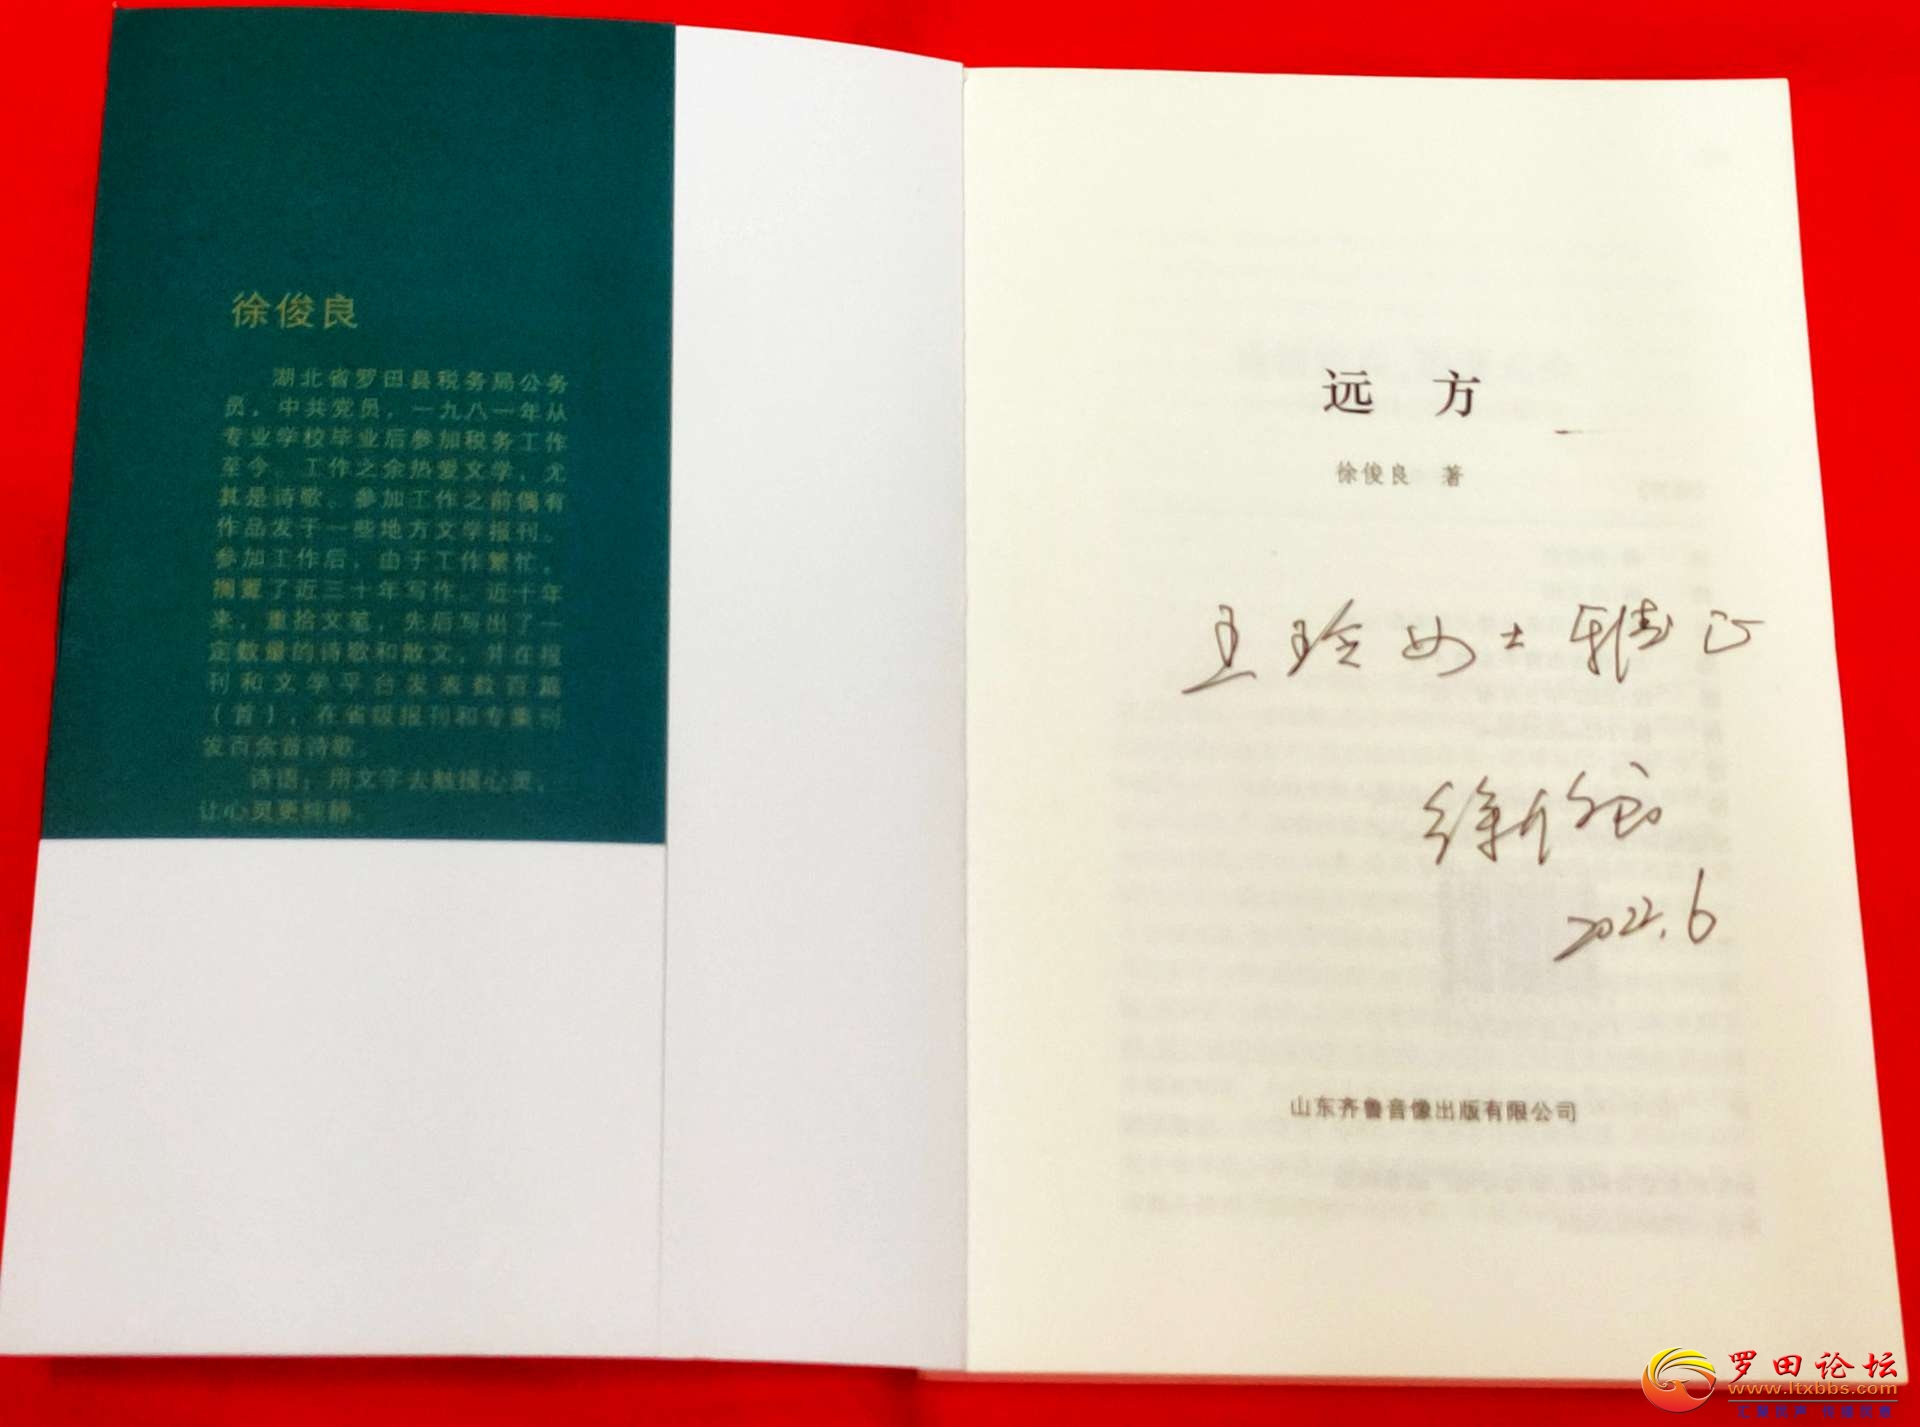 徐俊良
湖北省罗田县税务局公务
员，中共党员，一九八一年从
专业学校毕业后参加税务工作
至今。工作之余热爱文学，尤
其是诗歌。参加工作之前偶有
作品发于一些地方文学报刊。
参加工作后，由于工作繁忙，
搁置了近三十年写作。近十年
来，重拾文笔，先后写出了一
定数量的诗歌和散文，并在报
刊和文学平台发表数百篇
（首），在省级报刊和专集刊
发百余首诗歌。
诗语：用文字去触摸心灵，
让心灵更纯静。
远 方
徐俊良 著
王玲女士雅正
徐俊良
2022.6
山东齐鲁音像出版有限公司
罗田论坛
www.ltxbbs.com